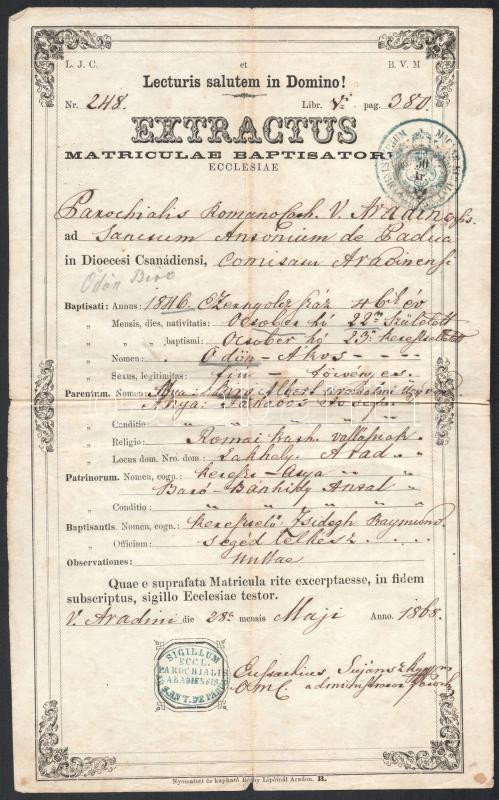 L. J. C. et B. V. M
Lecturis salutem in Domino!
Nr. 248. Libr. V. pag. 380.
EXTRACTUS
MATRICULAE BAPTISATORUM
ECCLESIAE
Parochialis Romano Cath. V. Aradinensis
ad Sanctum Antonium de Padua
in Dioecesi Csanádiensi, Comitatu Aradinensi
Ödön
Baptisati: Annus: 1846 Ezernyolcz száz 46ik év
„ Mensis, dies, nativitatis: October hó 22én született
„ „ baptismi: October hó 23. kereszteltetett
„ Nomen: Ödön - Ákos
„ Sexus, legitimitas: fiu - törvényes.
Parentum. Nomen, Atya: Albert
Anya:
„ Conditio: „ „ „ „
„ Religio: Romai kath. vallásuak
„ Locus dom. Nro. dom.: Lakhely Arad
Patrinorum. Nomen, cogn.: kereszt-Atya „ „
Baró Bánhidy Antal
„ Conditio: „ „ „ „
Baptisantis. Nomen, cogn.: keresztelő: Zsidegh Raymund
„ Officium: segéd lelkész
Observationes: nullae
Quae e suprafata Matricula rite excerptaesse, in fidem
subscriptus, sigillo Ecclesiae testor.
V. Aradini die 28a mensis Maji Anno. 1868.
SIGILLUM
ECCL.
PAROCHIALI
ARADIENSIS
S. ANT. DE PADUA
administrator
Nyomatott és kapható Réthy Lipótnál Aradon. B.